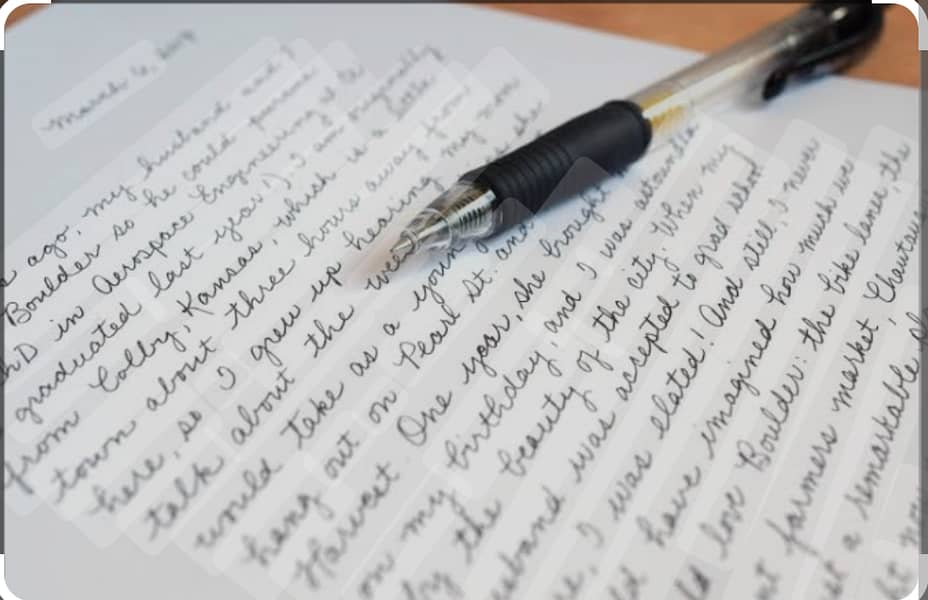 March 6, 2013
ago, my husband and
Boulder so he could pursue
PhD in Aerospace Engineering (he
graduated last year). I am originally
from Colby, Kansas, which is a little
town about three hours away from
here, so I grew up hearing my mom
talk about the
would take as a young
hang out on Pearl St. and
Harvest One year, she brought
on my birthday, and I was astounded
by the beauty of the city. When my
husband was accepted to grad school
I was elated! And still, I never
have imagined how much we
love Boulder: the bike lanes, the
farmers market, Chautauqua
a remarkable